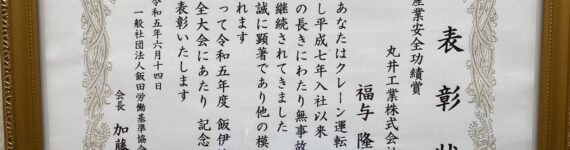 表彰状
産業安全功績賞
丸井工業株式会社
福与 隆
あなたはクレーン運転
し平成七年入社以来
の長きにわたり無事故
継続されてきました
誠に顕著であり他の模
れます
って令和五年度 飯伊
全大会にあたり 記念
表彰いたします
令和五年六月十四日
一般社団法人飯田労働基準協会
会長 加藤